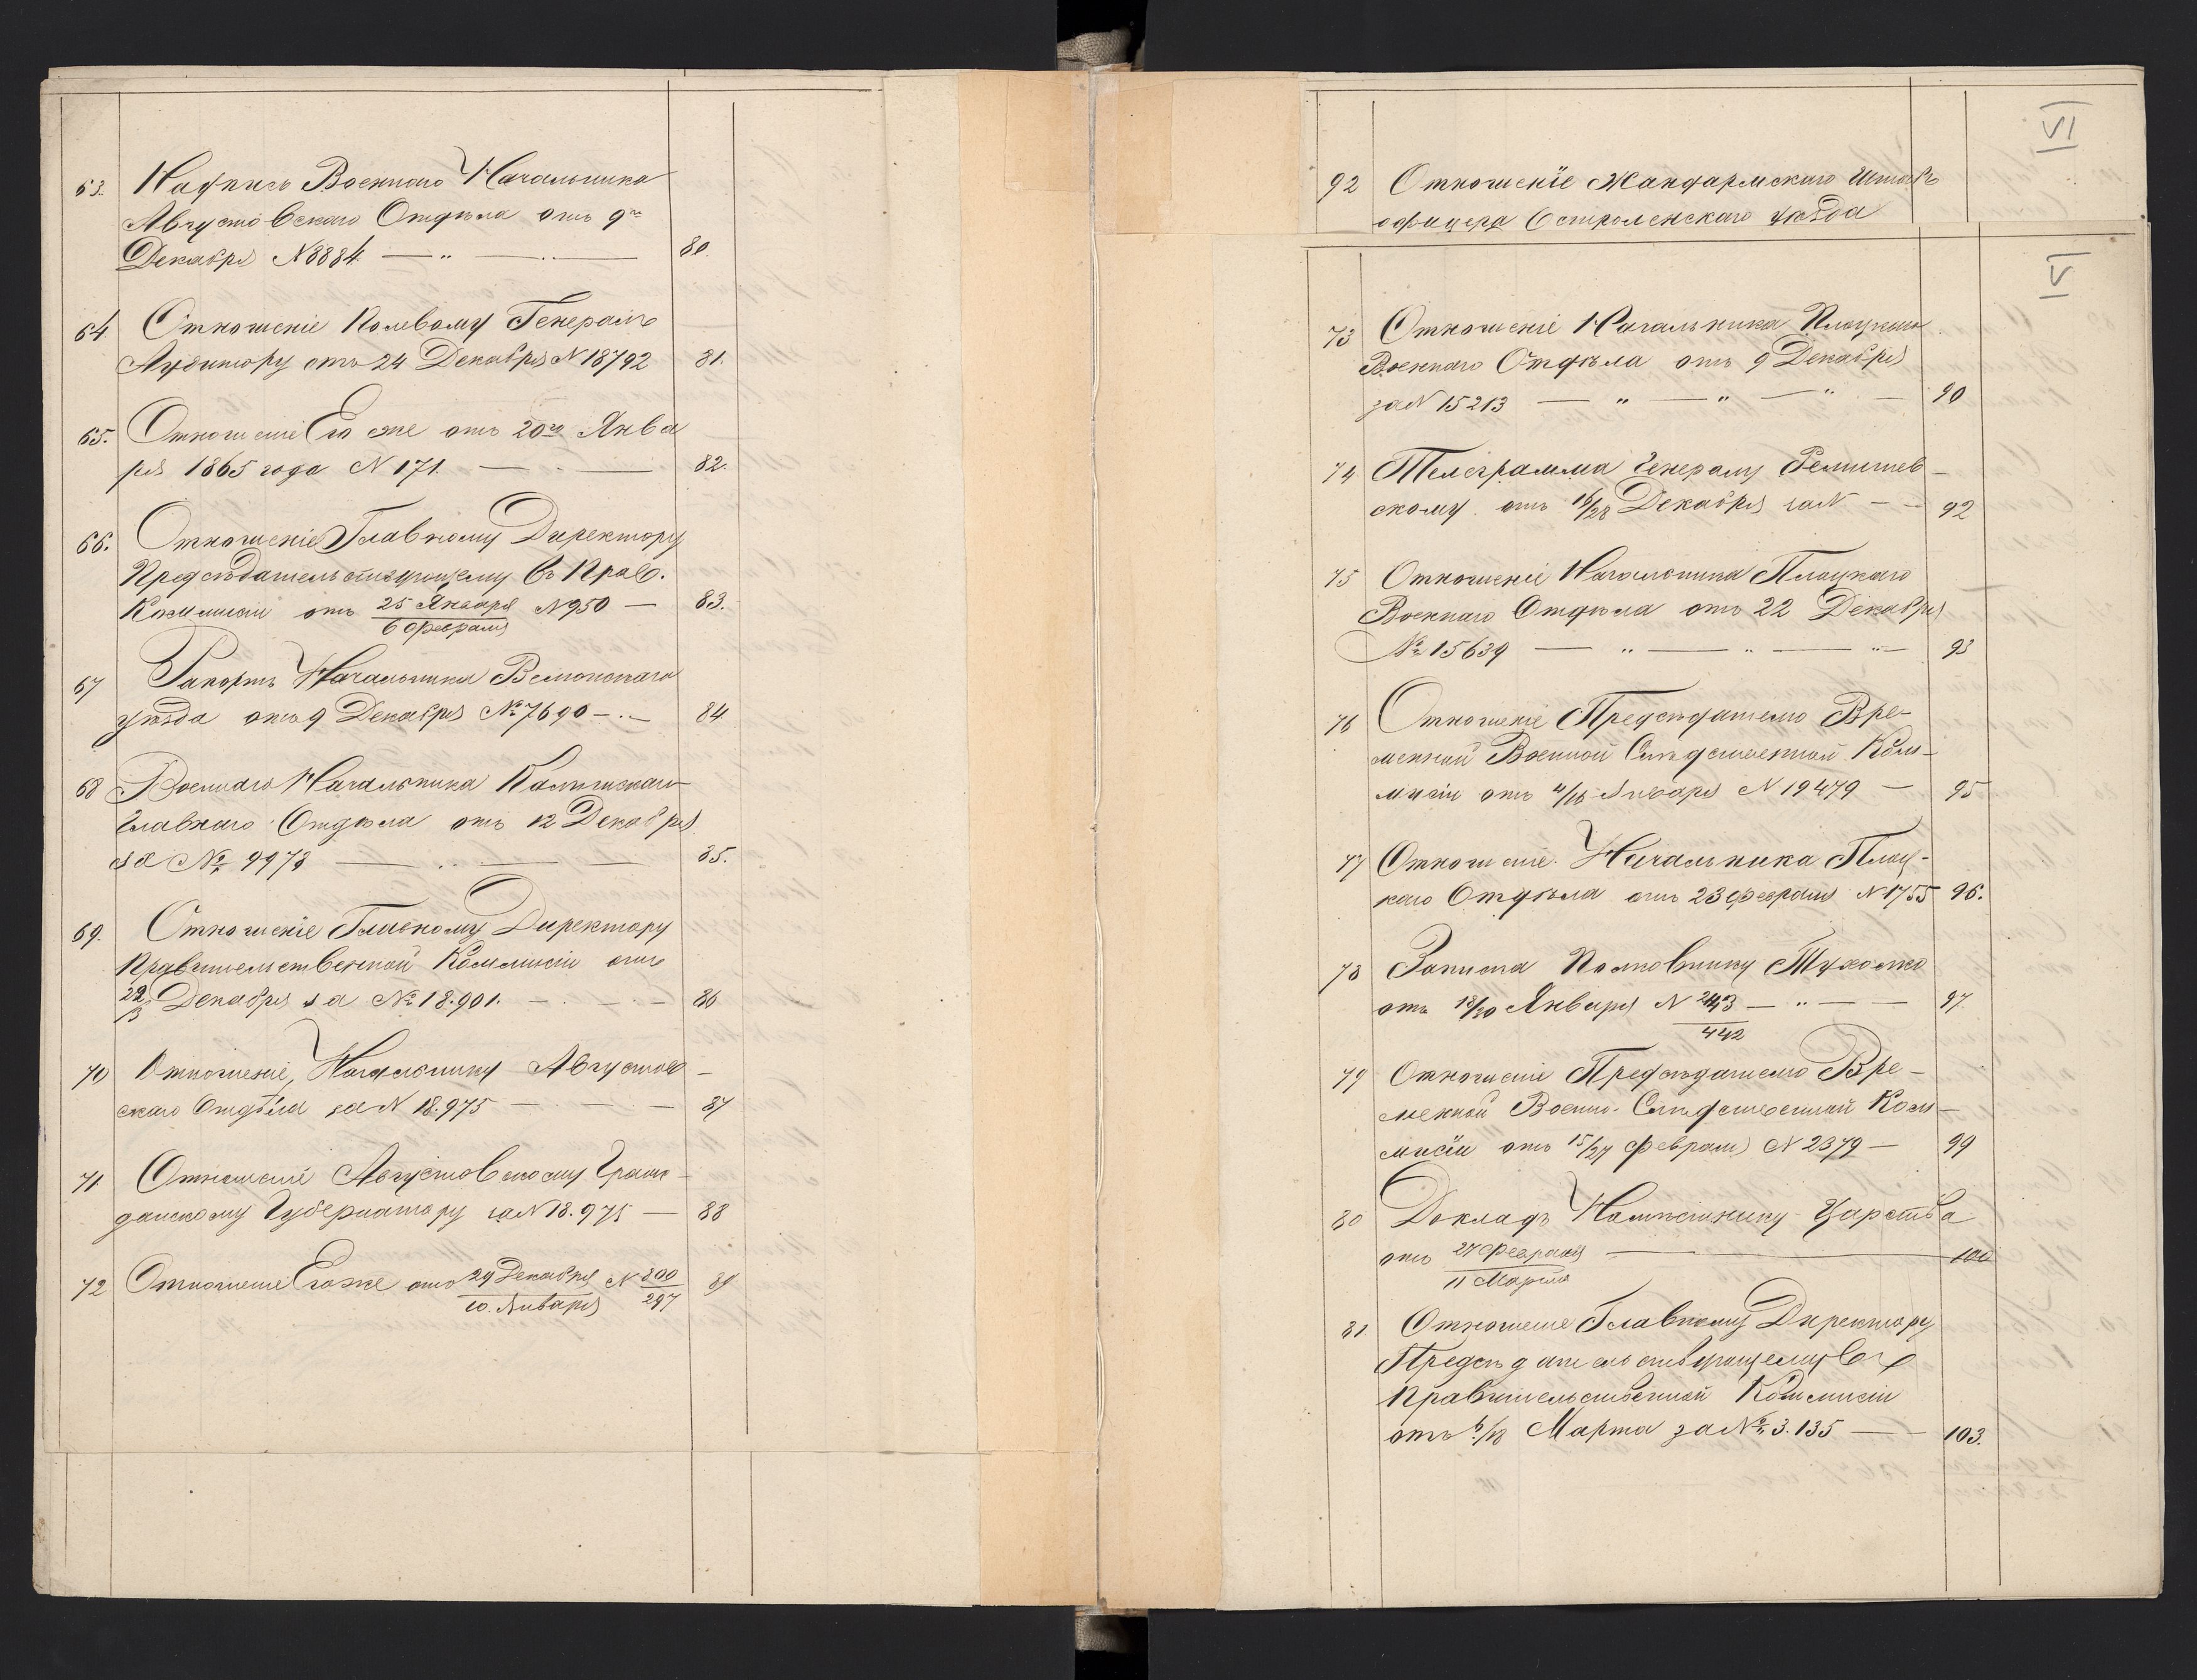 63. Надпись Военнаго Начальника
Августовскаго Отдѣла отъ 9го
Декабря N 8884 — " — . — 80.
64 Отношеніе Полевому Генералъ
Аудитору отъ 24 Декабря N 18792 81.
65. Отношеніе Его же отъ 20го Янва
ря 1865 года N 171. — . — 82.
66. Отношеніе Главному Директору
Предсѣдательствующему въ Прав.
Коммисіи отъ 25 Января / 6 Февраля N 950 — 83.
67 Рапортъ Начальника Велюнскаго
уѣзда отъ 9 Декабря № 7690 — . — 84
68 Военнаго Начальника Калишскаго
Главнаго Отдѣла отъ 12 Декабря
за № 9978 — .. — — 85.
69. Отношеніе Главному Директору
Правительственной Коммисіи отъ
22/3 Декабря за № 18.901. — . — . — 86
70 Отношеніе, Начальнику Августов-
скаго Отдѣла за N 18.975 — . — — 87
71 Отношеніе Августовскому Граж-
данскому Губернатору за N 18.975 — 88
72 Отношеніе Его же отъ 29 Декабря / 10. Января N 300/297 89
VI
92 Отношеніе Жандармскаго Штабъ
офицера Остроленскаго уѣзда
VI
73 Отношеніе Начальника Плоцкаго
Военнаго Отдѣла отъ 9 Декабря
за N 15213 — " — " — " — 90
74 Телеграмма Генералу
скому отъ 16/28 Декабря за N — — 92
75 Отношеніе Начальника Плоцкаго
Военнаго Отдѣла отъ 22 Декабря
№ 15639 — " — " — " — 93
76 Отношеніе Предсѣдателю Вре-
менной Военной Слѣдственной Ком-
мисіи отъ 4/16 Января N 19479 — 95
77 Отношеніе Начальника Плоц-
каго Отдѣла отъ 23 Февраля N 1755 96.
78 Записка Полковнику Тухолко
отъ 18/30 Января N 243/442 — " — — 97.
79 Отношеніе Предсѣдателю Вре-
менной Военно-Слѣдственной Ком-
мисіи отъ 15/27 Февраля N 2379 — 99
80 Докладъ Намѣстнику Царства
отъ 27 Февраля / 11 Марта — 100
81 Отношеніе Главному Директору
Предсѣдательствующему въ
Правительственной Коммисіи
отъ 6/18 Марта за № 3.135 — — 103.